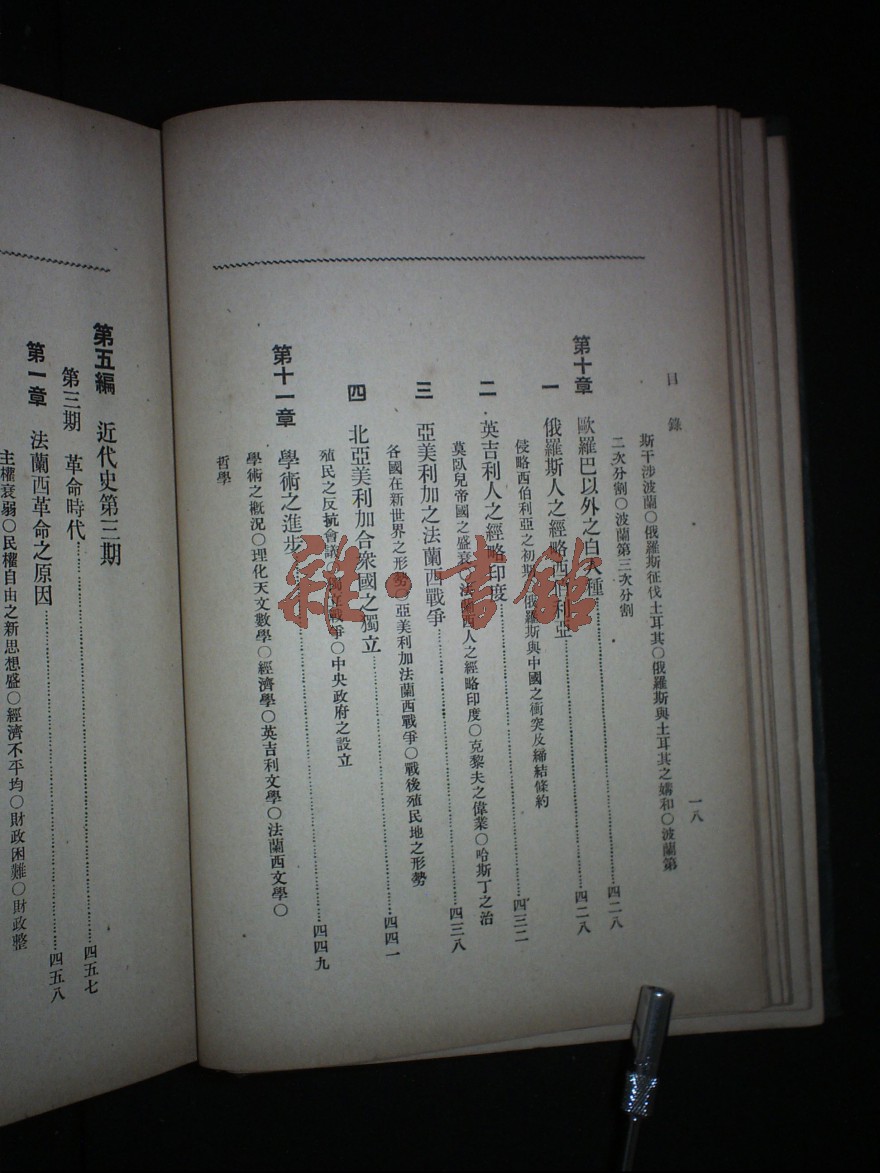 目錄
一八
斯干涉波蘭○俄羅斯征伐土耳其○俄羅斯與土耳其之媾和○波蘭第
二次分割○波蘭第三次分割
第十章 歐羅巴以外之白人種……四二八
一 俄羅斯人之經略西伯利亞……四二八
侵略西伯利亞之初期○俄羅斯與中國之衝突及締結條約
二 英吉利人之經略印度……四三二
莫臥兒帝國之盛衰○法蘭西人之經略印度○克黎夫之偉業○哈斯丁之治
三 亞美利加之法蘭西戰爭……四三八
各國在新世界之形勢○亞美利加法蘭西戰爭○戰後殖民地之形勢
四 北亞美利加合衆國之獨立……四四一
殖民之反抗會議○獨立戰爭○中央政府之設立
第十一章 學術之進步……四四九
學術之槪況○理化天文數學○經濟學○英吉利文學○法蘭西文學○
哲學
第五編 近代史第三期
第三期 革命時代……四五七
第一章 法蘭西革命之原因……四五八
主權衰弱○民權自由之新思想盛○經濟不平均○財政困難○財政整
雜·書館